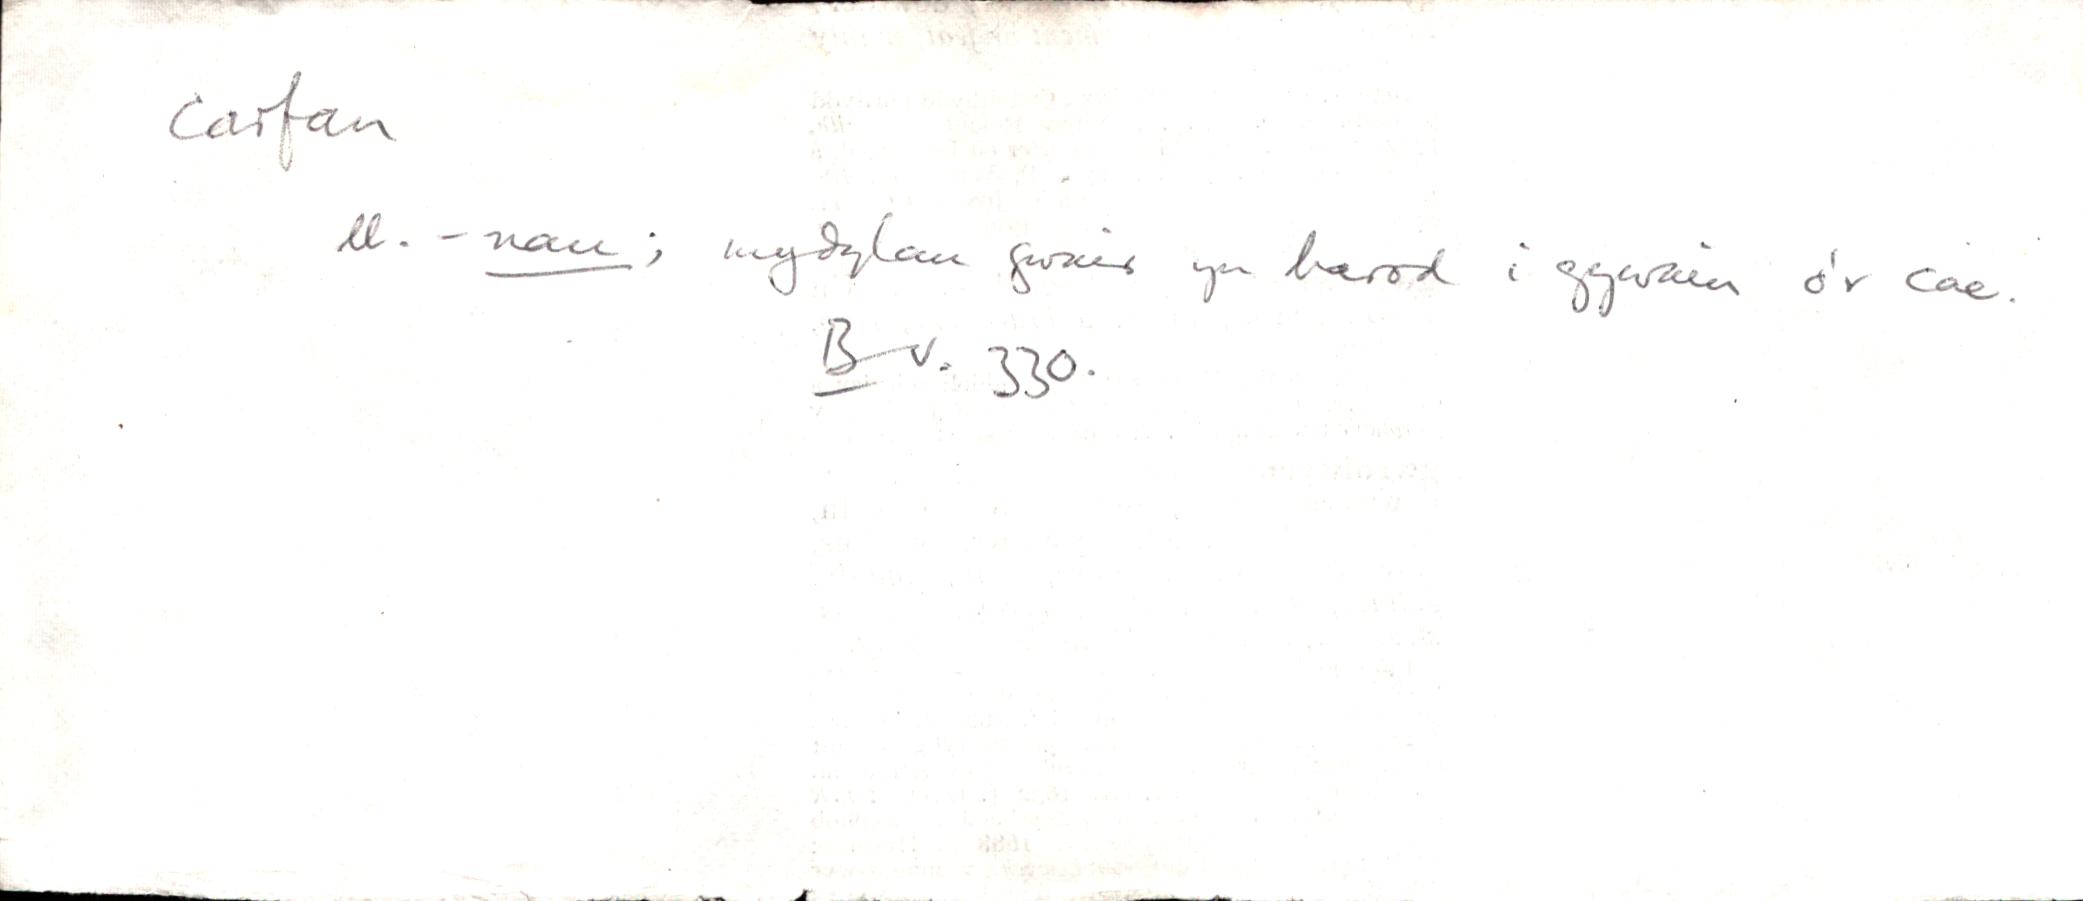 Carfan
ll. -nau; mydylau gwair yn barod i gywain o'r cae.
B v. 330.